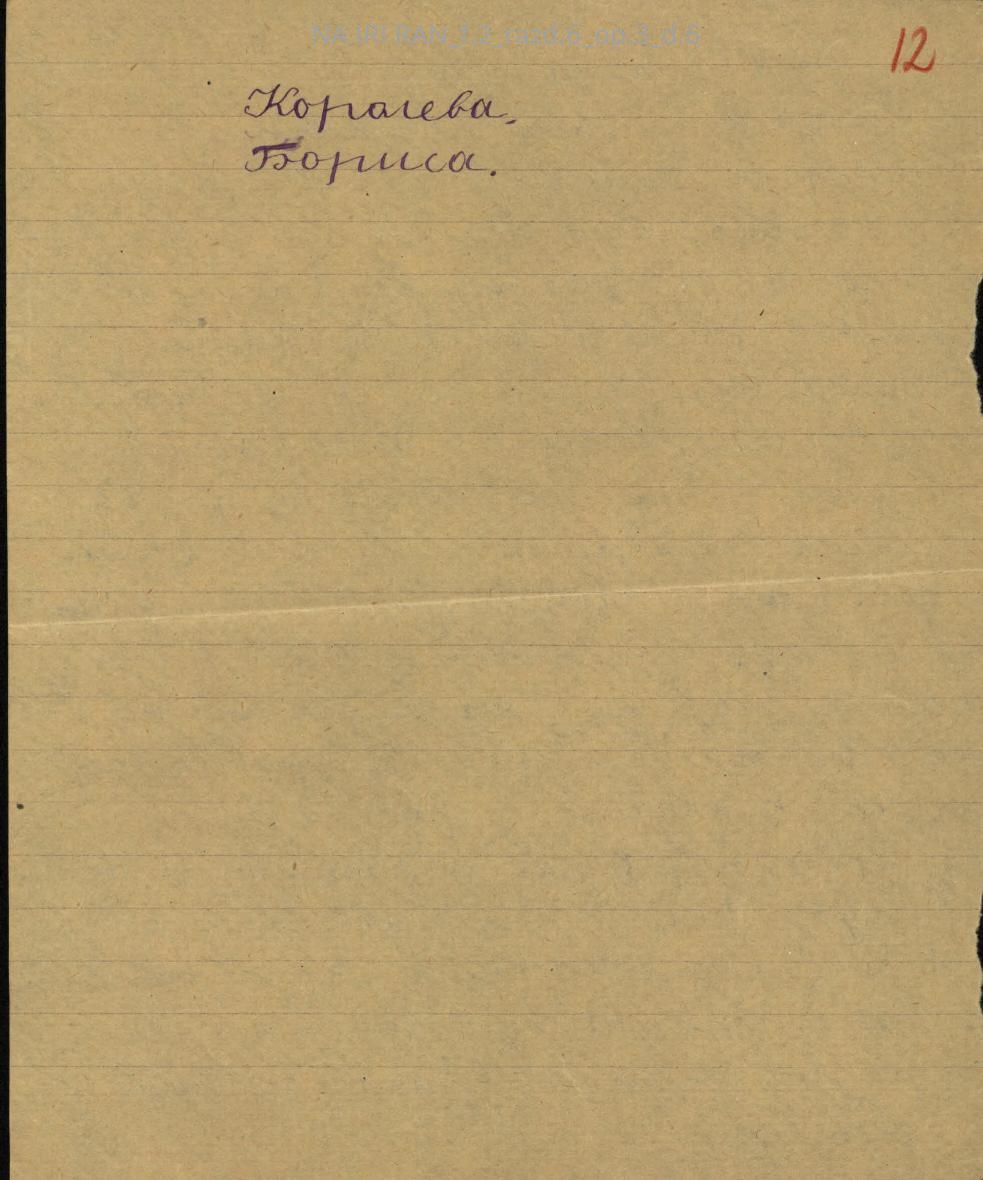 NA IRI RAN_f.2_razd.6_op.3_d.6
12
Корагева.
Бориса.